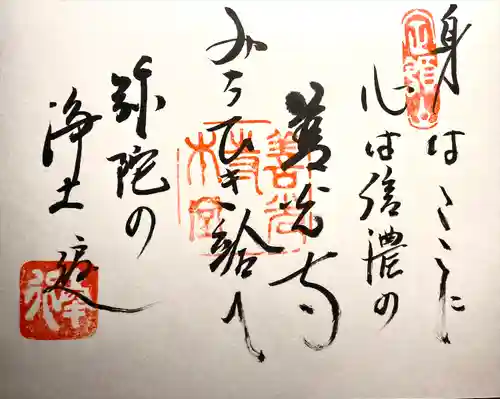 身はここに
心は信濃の
善光寺
みちびき給へ
弥陀の
浄土へ